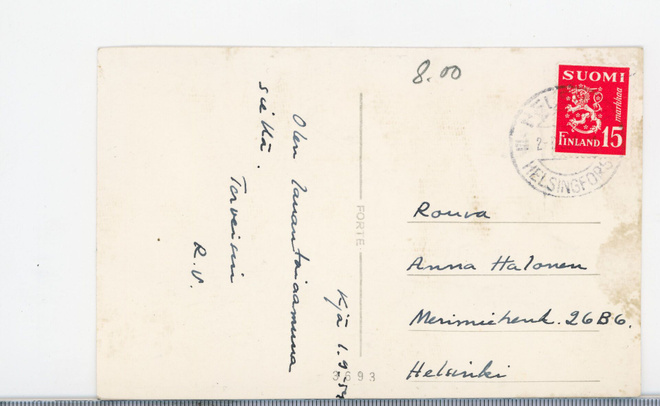 8.00
SUOMI
markkaa
FINLAND 15
HELSINGFORS
Kjä 1.9.
Olen lauantaiaamuna
siellä.
Terveisin
R.V.
PORTE
3693
Rouva
Anna Halonen
Merimiehenk. 26 B 6.
Helsinki